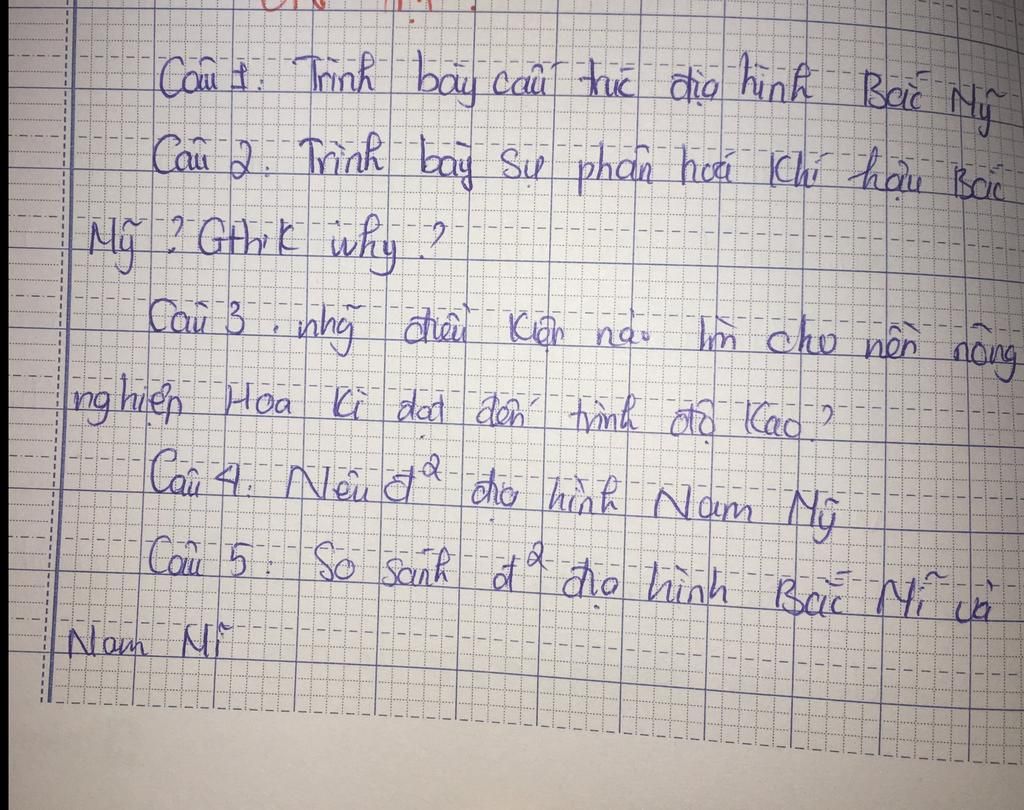 Câu 1. Trình bày cấu trúc địa hình Bắc Mỹ
Câu 2. Trình bày sự phân hoá khí hậu Bắc
Mỹ? Gthik why?
Câu 3. nhg̃ điều kiện nào làm cho nền nông
nghiệp Hoa Kì đạt đến trình độ Kao?
Câu 4. Nêu đ² địa hình Nam Mỹ
Câu 5. So sánh đ² địa hình Bắc Mĩ và
Nam Mĩ